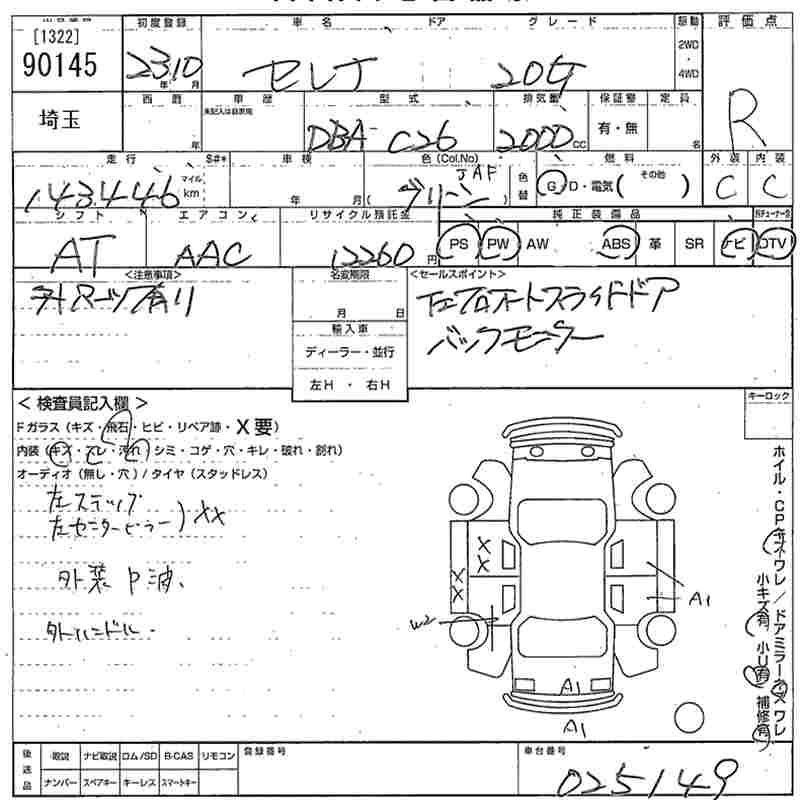 出品番号 初度登録 車名 ドア グレード 駆動 評価点
[1322]
90145
23.10 年 月
セレナ 20G
2WD・4WD
R
埼玉
西暦 年
車歴 未記入は自家用
型式 DBA-C26
排気量 2000 CC
保証書 有・無
定員 名
走行 S#* 車検 色(Col.No) 燃料 外装 内装
143,446 マイル km
年 月
グリーン (JAF) 色替
G/D・電気( その他 )
C C
シフト エアコン リサイクル預託金 純正装備品
AT AAC 12260 円
PS PW AW ABS 革 SR ナビ DTV
<注意事項> 名変期限 <セールスポイント>
月 日
左プロオートスライドドア
バックモニター
輸入車
ディーラー・並行
左H ・ 右H
<検査員記入欄>
キーロック
Fガラス(キズ・飛石・ヒビ・リペア跡・X要)
内装(キズ・スレ・汚れ・シミ・コゲ・穴・キレ・破れ・割れ)
オーディオ(無し・穴)/タイヤ(スタッドレス)
左ステップ
左センターピラー ) XX
外ハンドル.
X X
X X
W2
A1
A1
A1
ホイル・CPキズワレ/ドアミラーキズワレ
小キズ有 小U有 補修有
後送品 取説 ナビ取説 ロム/SD B-CAS リモコン 登録番号 車台番号
ナンバー スペアキー キーレス スマートキー
025149